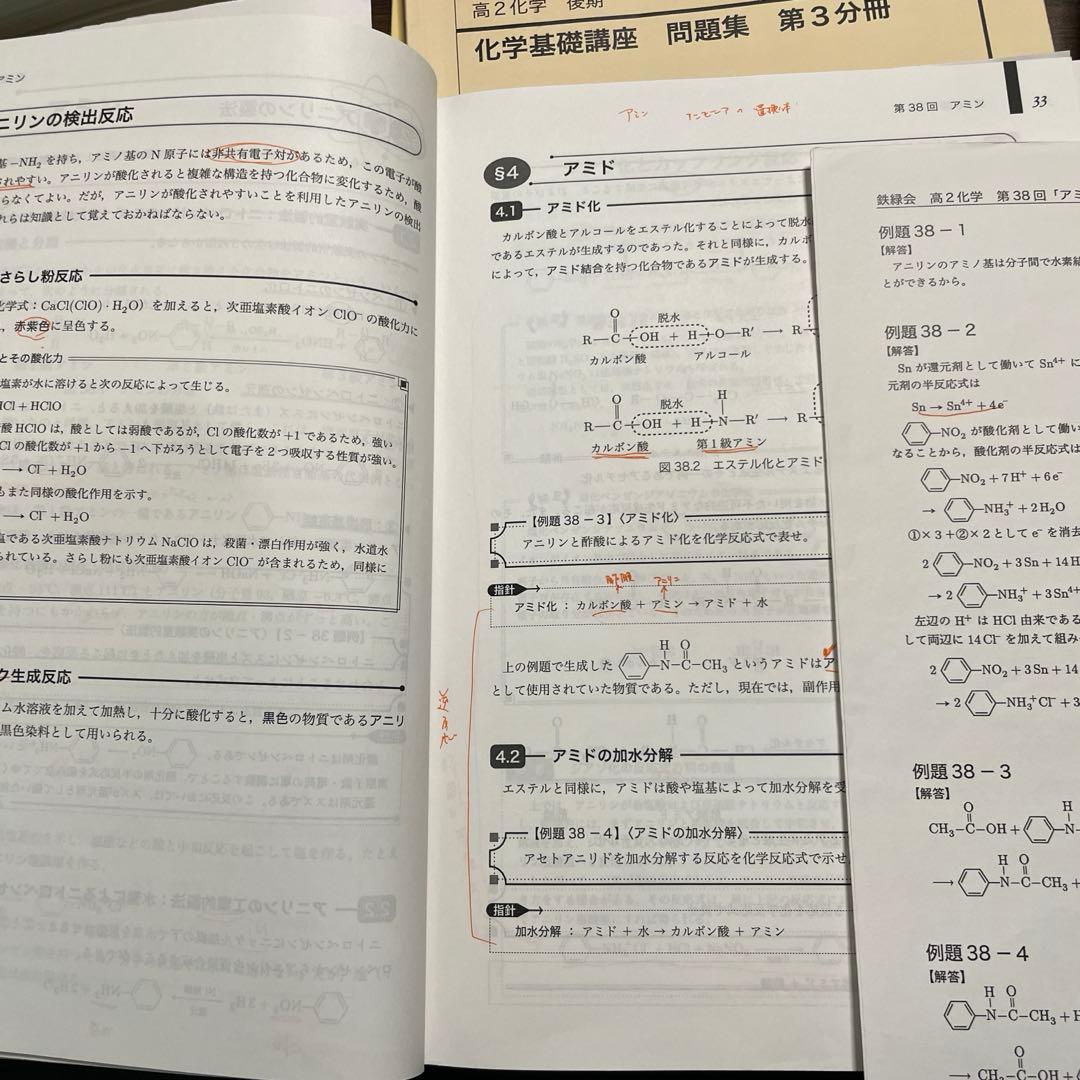 高２化学　後期
化学基礎講座　問題集　第３分冊
アミン
ニリンの検出反応
基 −NH₂ を持ち，アミノ基の N 原子には非共有電子対があるため，この電子が酸
されやすい。アニリンが酸化されると複雑な構造を持つ化合物に変化するため，酸
らなくてよい。だが，アニリンが酸化されやすいことを利用したアニリンの検出
れらは知識として覚えておかねばならない。
さらし粉反応
化学式：CaCl(ClO)·H₂O）を加えると，次亜塩素酸イオン ClO⁻ の酸化力に
，赤紫色に呈色する。
とその酸化力
塩素が水に溶けると次の反応によって生じる。
HCl + HClO
酸 HClO は，酸としては弱酸であるが，Cl の酸化数が +1 であるため，強い
Cl の酸化数が +1 から −1 へ下がろうとして電子を２つ吸収する性質が強い。
⟶ Cl⁻ + H₂O
もまた同様の酸化作用を示す。
⟶ Cl⁻ + H₂O
塩である次亜塩素酸ナトリウム NaClO は，殺菌・漂白作用が強く，水道水
られている。さらし粉にも次亜塩素酸イオン ClO⁻ が含まれるため，同様に
ク生成反応
ム水溶液を加えて加熱し，十分に酸化すると，黒色の物質であるアニリ
黒色染料として用いられる。
アミン　アンモニアの置換体
第 38 回　アミン　33
§4　アミド
4.1　アミド化
カルボン酸とアルコールをエステル化することによって脱水
であるエステルが生成するのであった。それと同様に，カルボ
によって，アミド結合を持つ化合物であるアミドが生成する。
O　脱水
R−C−OH + H−O−R′ ⟶ R−
カルボン酸　アルコール
O　脱水　H
R−C−OH + H−N−R′ ⟶ R−
カルボン酸　第１級アミン
図 38.2　エステル化とアミド
【例題 38 − 3】〈アミド化〉
アニリンと酢酸によるアミド化を化学反応式で表せ。
指針
酢酸　アニリン
アミド化 ： カルボン酸 + アミン → アミド + 水
H　O
上の例題で生成した −N−C−CH₃ というアミドはア
として使用されていた物質である。ただし，現在では，副作用
逆反応
4.2　アミドの加水分解
エステルと同様に，アミドは酸や塩基によって加水分解を受
【例題 38 − 4】〈アミドの加水分解〉
アセトアニリドを加水分解する反応を化学反応式で示せ
指針
加水分解 ： アミド + 水 → カルボン酸 + アミン
鉄緑会　高２化学　第 38 回「アミ
例題 38 − 1
【解答】
アニリンのアミノ基は分子間で水素結
とができるから。
例題 38 − 2
【解答】
Sn が還元剤として働いて Sn⁴⁺ に
元剤の半反応式は
Sn → Sn⁴⁺ + 4e⁻
−NO₂ が酸化剤として働い
なることから，酸化剤の半反応式は
−NO₂ + 7H⁺ + 6e⁻
→ −NH₃⁺ + 2H₂O
①×３＋②×２として e⁻ を消去
2 −NO₂ + 3Sn + 14H
→ 2 −NH₃⁺ + 3Sn⁴⁺
左辺の H⁺ は HCl 由来である
して両辺に 14Cl⁻ を加えて組み
2 −NO₂ + 3Sn + 14
→ 2 −NH₃⁺Cl⁻ + 3
例題 38 − 3
【解答】
O　H
CH₃−C−OH + −N−
H　O
⟶ −N−C−CH₃ +
例題 38 − 4
【解答】
H　O
−N−C−CH₃ + H
O
⟶ CH₃−C−OH +